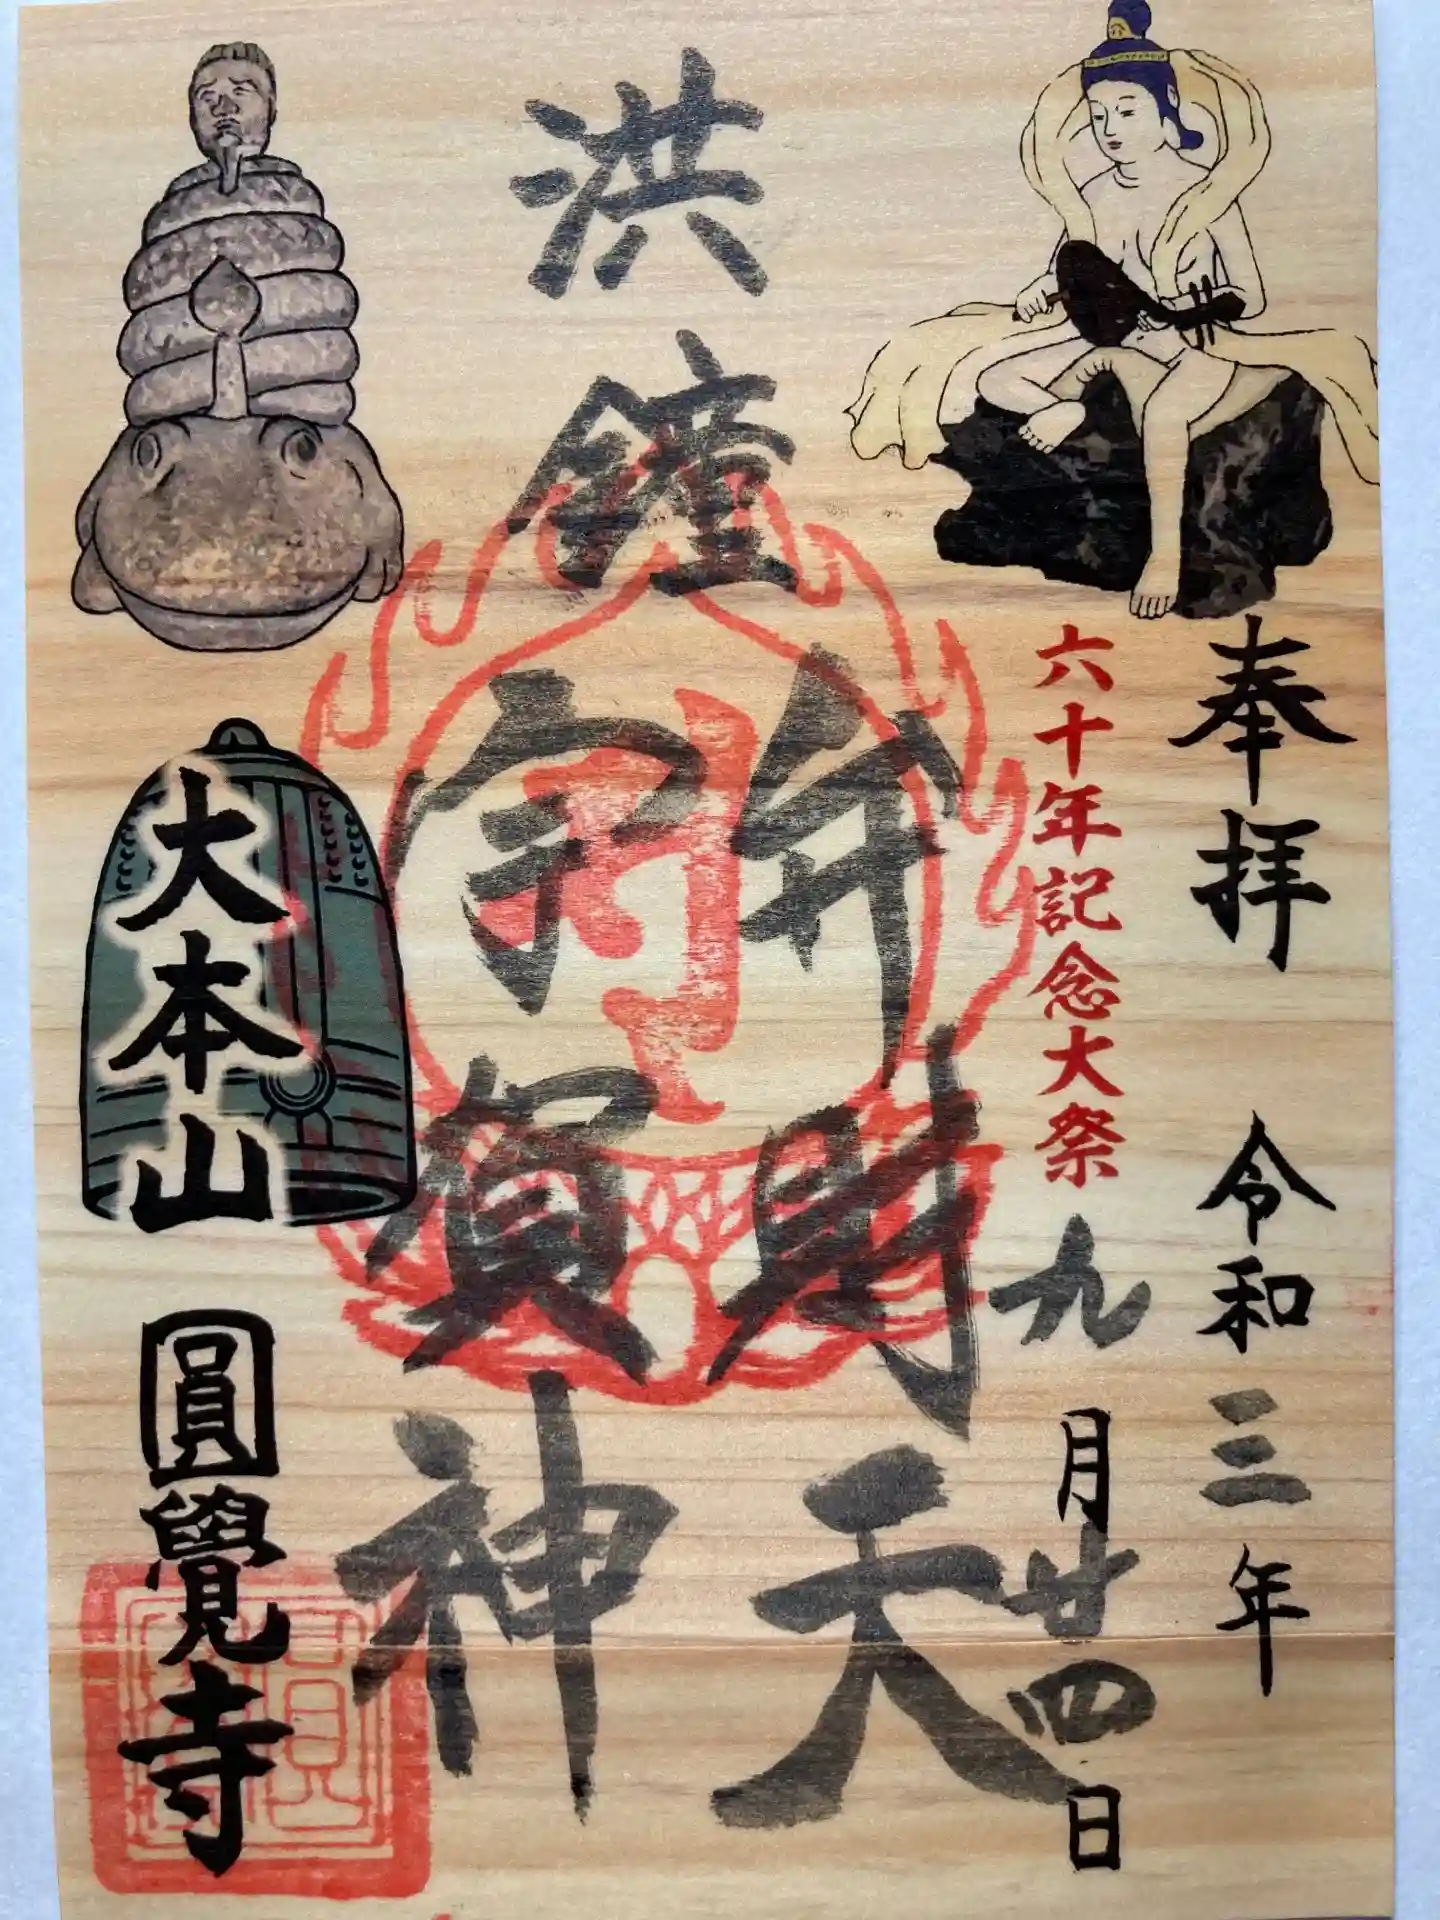 奉拝 令和三年
六十年記念大祭 九月廿四日
洪鐘
弁財天
宇賀神
大本山
圓覺寺